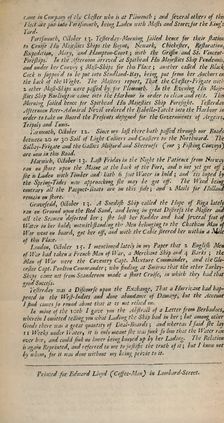 came in Company of the Chester who is at Plimouth; and several others of the
Fleet are put into Portsmouth, being Laden with Masts and Stores for the King's
Yard.
Portsmouth, October 13. Yesterday-Morning sailed hence for their station
to Cruise His Majesties Ships the Boyne, Newark, Chichester, Restauration,
Expedition, Mary, and Hampton-Court; with the Griffin and St. Vincent,
Fireships. In the Afternoon arrived at Spithead His Majesties Ship
and under her Convoy 3
Cock is supposed to be put into
the back of the Wight. The Masters report, That the Chester-Frigate with
2 other Mast-Ships were passed by for Plimouth. In the Evening His Majesties
Ship Burlington came into the Harbour in order to clean and refit. This
Morning sailed hence for Spithead His Majesties Ship Fireship. Yesterday
Afternoon Rere-Admiral Benbow entered the Harbour in
order to take on Board the Presents designed for the Governments of Argiers,
Tripoli and Tunis.
Yarmouth, October 12. Since my last there hath passed through our Roads
between 20 or 30 Sail of Light Colliers and Coasters to the Northward. The
Sallay-Frigate and the Gallies Mustard and Sheerness (our 3 Fishing Convoys)
are in this Road.
Harwich, October 13. Last Friday in the Night the Fortune from Newry
ran on shore upon the Maine at the back of the Pans, and is not yet got off.
She is Laden with Timber and hath 6 foot Water in hold; and its hoped by
the Spring-Tides now approaching she may be got off. The Wind being
contrary all the Pacquet-boats are in this side; and 2 Mails for Holland
remain on shore.
Gravesend, October 13. A Swedish Ship called the Hope of Riga lately
ran on Ground upon the Red Sand, and being in great Distress the Master and
all the Seamen deserted her; she lost her Rudder and had several foot of
Water in her hold, notwithstanding the Men belonging to the Chatham Man of
War went on board, got her off, and with the Tides steered her within a Mile
of this Place.
London, October 15. I mentioned lately in my Paper that 2 English Men
of War had taken a French Man of War, a Merchant Ship and a Bark; the
Men of War were the Coventry Capt. Mixture Commander, and the Gloucester
Capt. Pembro Commander; who finding at Smirna that the other Turkey
Ships come not from Scanderoon made a short Cruise, in which they had that
good Success.
Yesterday was a Discourse upon the Exchange, That a Hurricane had happened
in the West-Indies and done abundance of Damage, but the Account
I find varies so much about that it is not relied on.
In mine of the 10th I gave you the Abstract of a Letter from Barbadoes,
wherein I omitted telling you what Lading the Ship had in her; but among other
Goods there was a great quantity of Deal-Boards; and whereas I said she lay
11 Weeks under Water, it is only meant she was sunk so low that the Water ran
over her, and could sink no lower being buoyed up by her Lading. The Relation
is again Reprinted, and referred to me to justifie the truth of it; but I know not
by whom, for it was done without my being privie to it.
Printed for Edward Lloyd (Coffee-Man) in Lombard-Street.